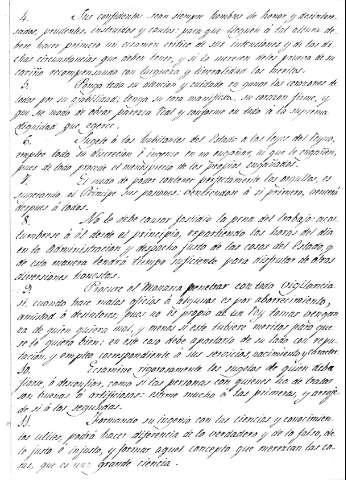 4. Sus confidentes sean siempre hombres de honor, y desinteresados, prudentes, instruidos y cautos: para que lleguen a tal altura debe hacer primero un examen critico de sus intenciones y de las dichas circunstancias que deben tener, y si lo merecen deles prueva de su cariño recompensando con largueza y liberalidad los meritos.
5. Ponga todo su atencion y cuidado en ganar los corazones de todos por su afabilidad; tenga su cara manifiesta, su corazon firme, y que su modo de obrar parezca Real y conforme en todo a la suprema dignidad que ejerce.
6. Sugete a los habitantes del Estado a las leyes del Reyno, emplee toda su discrecion e ingenio en no engañar, ni que le engañen, pues de todo procede el menosprecio de los propios engañados.
7. El modo de poder contener perfectamente los vasallos, es sugetando el Principe sus pasiones: venciendose a si primero, vencerá despues á todos.
8. No le debe causar fastidio la pena del trabajo: acostumbrese á él desde el principio, repartiendo las horas del dia en la Administracion y despacho justo de las cosas del Estado, y de esta manera tendrá tiempo suficiente para disfrutar de otras diversiones honestas.
9. Procure el Monarca penetrar con toda vigilancia si cuando hace malos oficios á algunos es por aborrecimiento, amistad ó desinteres, pues no es propio de un Rey tomar venganza de quien quiera mal, y menos si este tubiere meritos para que se le quiera bien: en este caso debe apartarlo de su lado con reputacion, y empleo correspondiente á sus servicios, nacimiento y caracter.
10. Examine rigorosamente los sugetos de quien deba fiarse, ó desconfiar, como si las personas con quienes ha de tratar son buenas ó artificiosas: estime mucho á las primeras, y arroje de si á las segundas.
11. Hornando su ingenio con las ciencias y conocimientos utiles, podrá hacer diferencia de lo verdadero y de lo falso, de lo justo é injusto, y formar aquel concepto que merezcan las cosas, que es una grande ciencia.